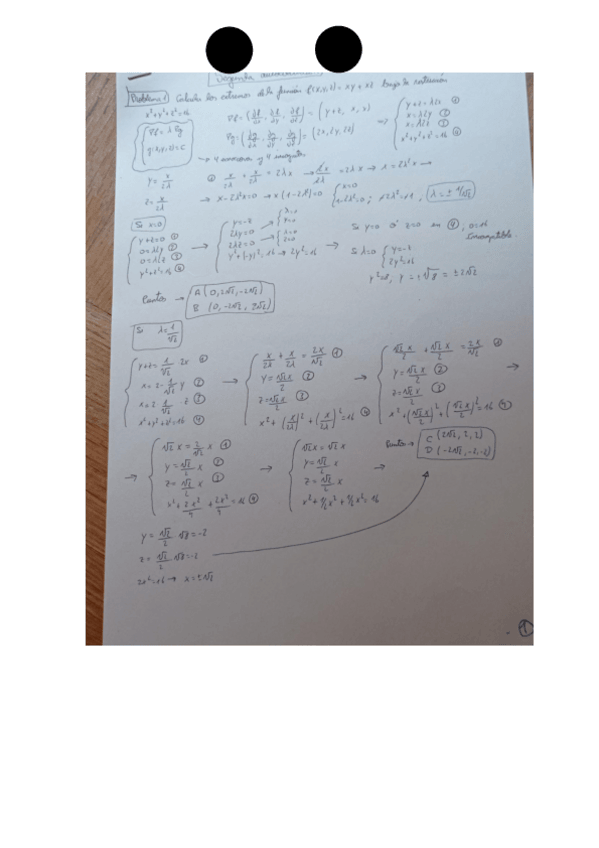 Segunda
Problema 1 Calcula los extremos de la función f(x,y,z) = xy + xz bajo la restricción
x²+y²+z²=16
∇f = λ∇g
g(x,y,z)=C
∇f = (∂f/∂x, ∂f/∂y, ∂f/∂z) = (y+z, x, x)
∇g = (∂g/∂x, ∂g/∂y, ∂g/∂z) = (2x, 2y, 2z)
⇒ { y+z = λ2x ①
x = λ2y ②
x = λ2z ③
x²+y²+z²=16 ④
→ 4 ecuaciones y 4 incógnitas
y = x/2λ
z = x/2λ
① x/2λ + x/2λ = 2λx → 2x/2λ = 2λx → x = 2λ²x →
→ x - 2λ²x = 0 → x(1-2λ²)=0 { x=0
1-2λ²=0; 2λ²=1, λ = ± 1/√2
Si x=0
{ y+z=0 ①
0=λ2y ②
0=λ2z ③
y²+z²=16 ④
→ { y=-z
2λy=0 → { λ=0
y=0
2λz=0 → { λ=0
z=0
y²+(-y)²=16 → 2y²=16
→ Si y=0 ó z=0 en ④, 0=16
Incompatible
Si λ=0 { y=-z
2y²=16
y²=8, y=±√8 = ±2√2
Puntos → A (0, 2√2, -2√2)
B (0, -2√2, 2√2)
Si λ = 1/√2
{ y+z = 1/√2 2x ①
x = 2·1/√2 y ②
x = 2·1/√2 z ③
x²+y²+z²=16 ④
→ { x/2λ + x/2λ = 2x/√2 ①
y = √2x/2 ②
z = √2x/2 ③
x² + (x/2λ)² + (x/2λ)² = 16 ④
→ { √2x/2 + √2x/2 = 2x/√2 ①
y = √2x/2 ②
z = √2x/2 ③
x² + (√2x/2)² + (√2x/2)² = 16 ④
→
→ { √2x = 2/√2 x ①
y = √2/2 x ②
z = √2/2 x ③
x² + 2x²/4 + 2x²/4 = 16 ④
→ { √2x = √2x
y = √2/2 x
z = √2/2 x
x² + 1/2x² + 1/2x² = 16
→ Puntos → C (2√2, 2, 2)
D (-2√2, -2, -2)
y = √2/2 √8 = -2
z = √2/2 √8 = -2
2x²=16 → x = ±√8
①